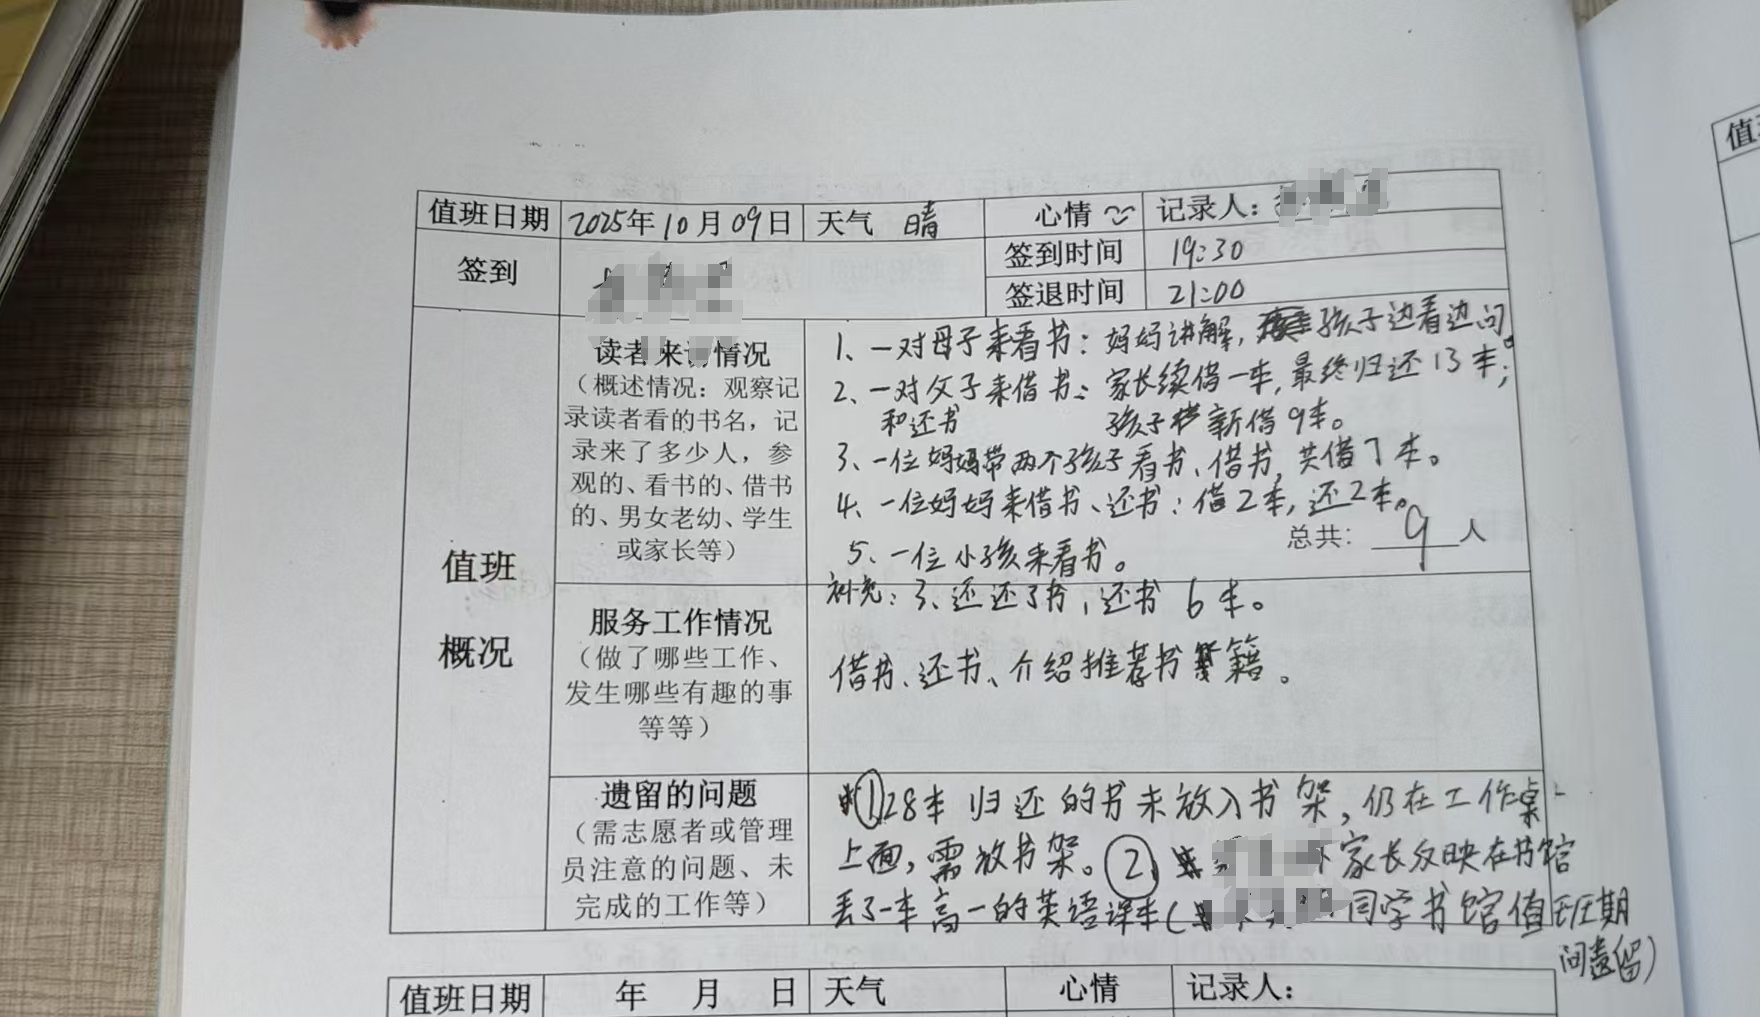 值班日期 2025年10月09日 天气 晴 心情 记录人：
签到 签到时间 19:30
签退时间 21:00
值班概况
读者来访情况
（概述情况：观察记
录读者看的书名，记
录来了多少人，参
观的、看书的、借书
的、男女老幼、学生
或家长等）
1、一对母子来看书：妈妈讲解，孩子边看边问。
2、一对父子来借书：家长续借一本，最终归还13本；
和还书 孩子新借9本。
3、一位妈妈带两个孩子看书、借书，共借7本。
4、一位妈妈来借书、还书：借2本，还2本。
5、一位小孩来看书。
总共：9人
补充：3、还还了书，还书6本。
服务工作情况
（做了哪些工作、
发生哪些有趣的事
等等）
借书、还书、介绍推荐书籍。
遗留的问题
（需志愿者或管理
员注意的问题、未
完成的工作等）
①28本归还的书未放入书架，仍在工作桌
上面，需放书架。②、家长反映在书馆
丢了一本高一的英语课本（同学书馆值班期
间遗留）
值班日期 年 月 日 天气 心情 记录人：
值班